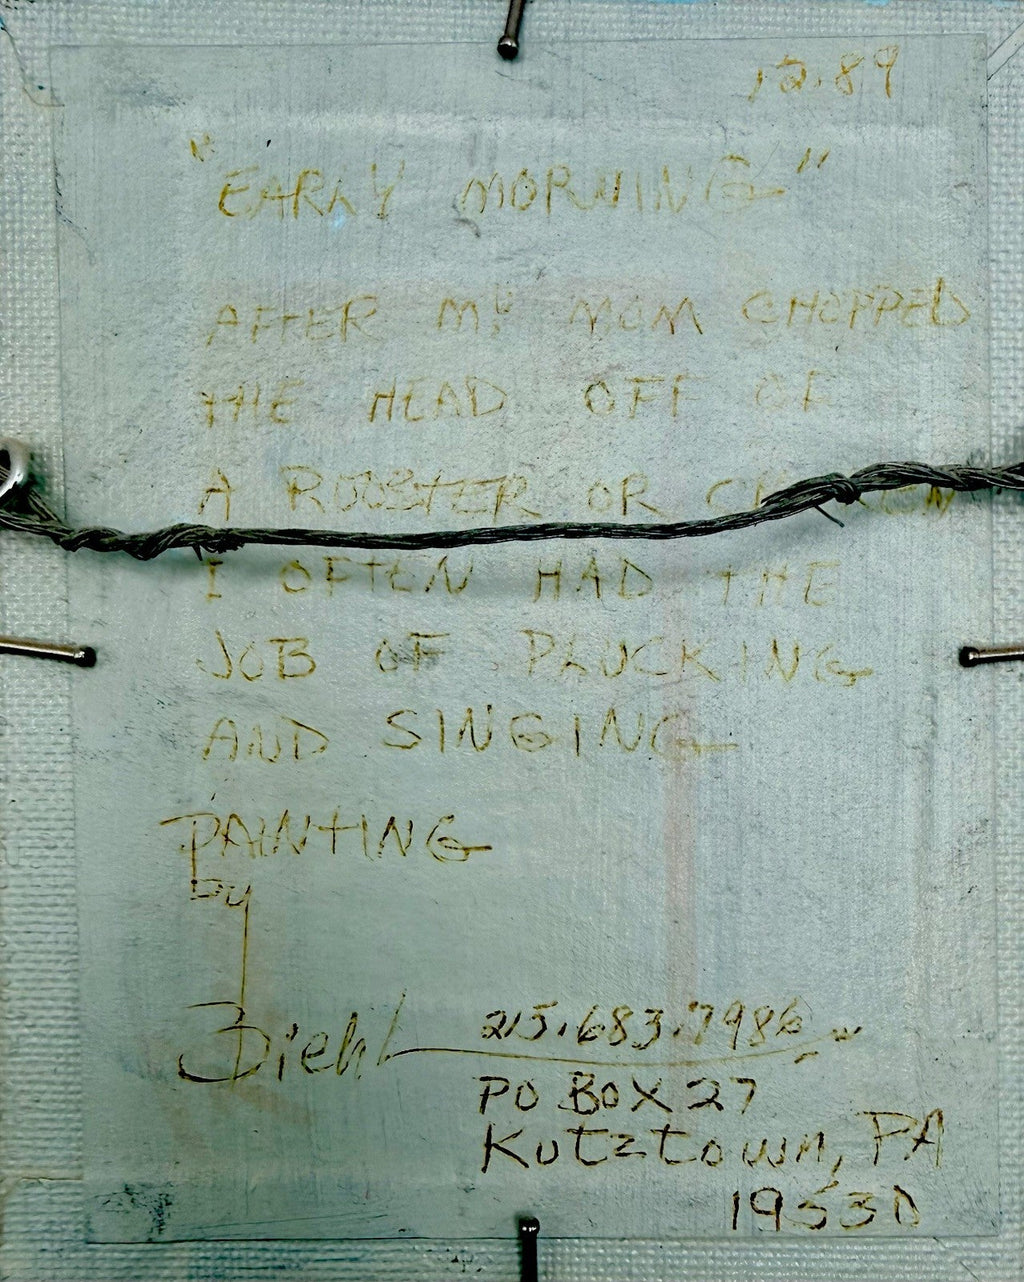 12.89
"EARLY MORNING"
AFTER MY MOM CHOPPED
THE HEAD OFF OF
A ROOSTER OR
I OFTEN HAD THE
JOB OF PLUCKING
AND SINGING
PAINTING
by
Biehl 215.683.7986
PO BOX 27
Kutztown, PA
19530